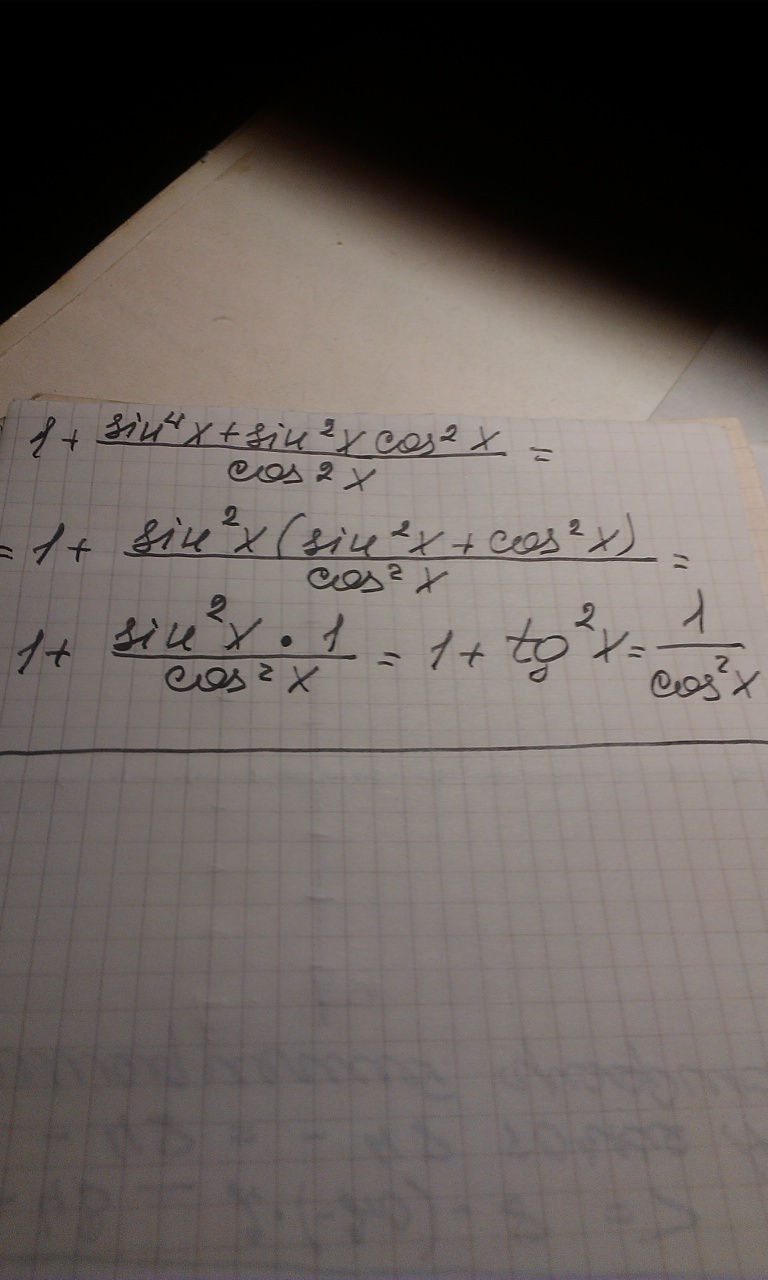 1 + (sin⁴x + sin²x cos²x) / cos²x =
= 1 + sin²x (sin²x + cos²x) / cos²x =
1 + sin²x · 1 / cos²x = 1 + tg²x = 1 / cos²x